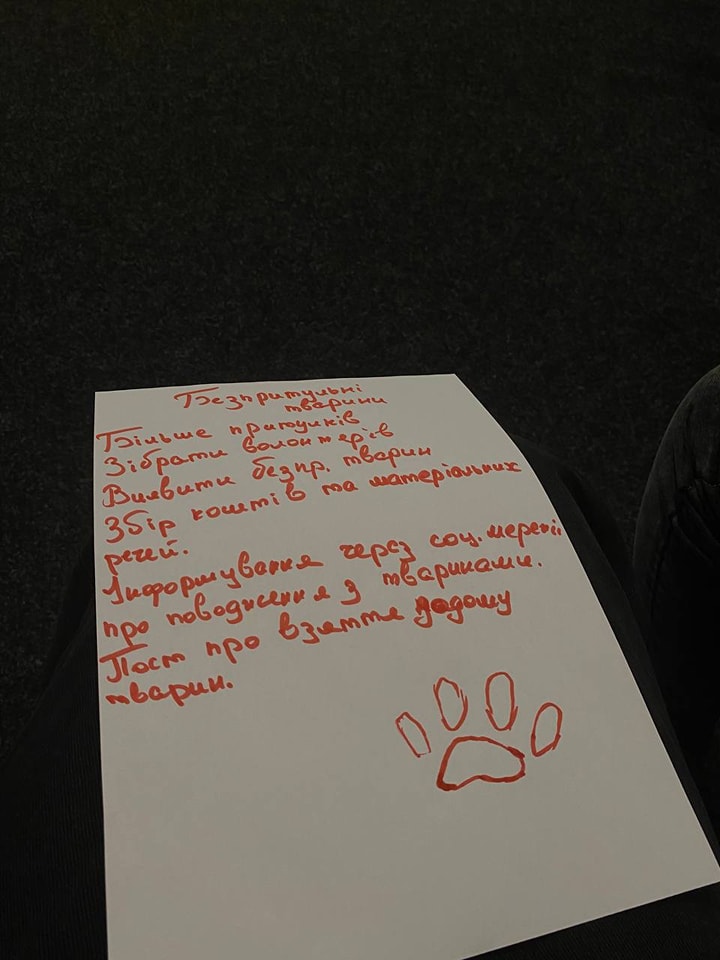 Безпритульні
тварини
Більше притулків
Зібрати волонтерів
Виявити безпр. тварин
Збір коштів та матеріальних
речей.
Інформування через соц. мережі
про поводження з тваринами.
Пост про взяття додому
тварин.